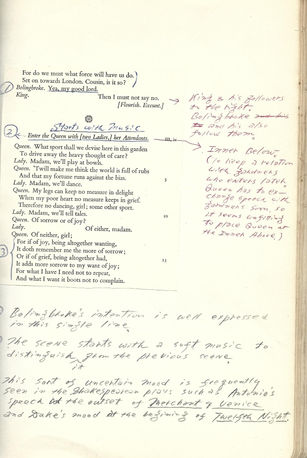 For do we must what force will have us do.
Set on towards London. Cousin, is it so?
1 Bolingbroke. Yea, my good lord.
King. Then I must not say no.
[Flourish. Exeunt.]
King & his followers
to the right,
Bolingbroke
and his also
follow them
Starts with Music
2 Enter the Queen with [two Ladies,] her Attendants. III, iv
Queen. What sport shall we devise here in this garden
To drive away the heavy thought of care?
Lady. Madam, we'll play at bowls.
Queen. 'Twill make me think the world is full of rubs
And that my fortune runs against the bias. 5
Lady. Madam, we'll dance.
Queen. My legs can keep no measure in delight
When my poor heart no measure keeps in grief.
Therefore no dancing, girl; some other sport.
Lady. Madam, we'll tell tales. 10
Queen. Of sorrow or of joy?
Lady. Of either, madam.
Queen. Of neither, girl;
3 For if of joy, being altogether wanting,
It doth remember me the more of sorrow;
Or if of grief, being altogether had, 15
It adds more sorrow to my want of joy;
For what I have I need not to repeat,
And what I want it boots not to complain.
Inner Below
(to keep a relation
with Gardeners
who enters later
Queen has to ex-
change speech with
Gardeners soon so
it seems
to place Queen at
the Inner Above)
Bolingbroke's intention is well expressed
in this single line.
The scene starts with a soft music to
distinguish it from the previous scene.
This sort of uncertain mood is frequently
seen in the Shakespearean plays such as Antonio's
speech at the outset of Merchant of Venice
and Duke's mood at the beginning of Twelfth Night